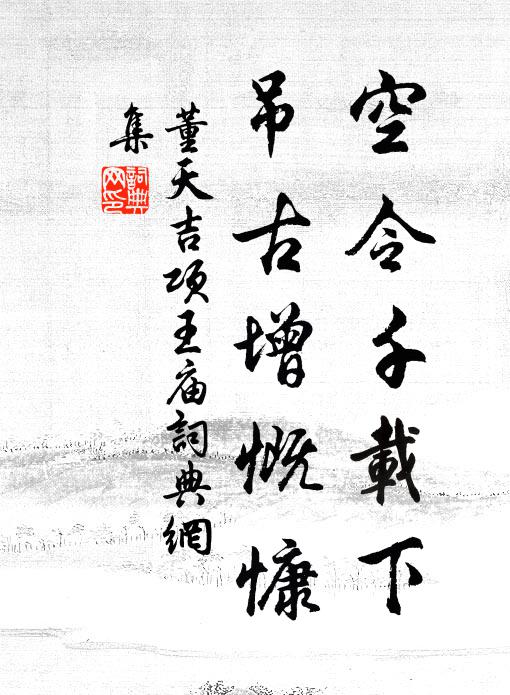 空令千載下
吊古增慨慷
董天吉项王庙詞典網
集
詞典网印